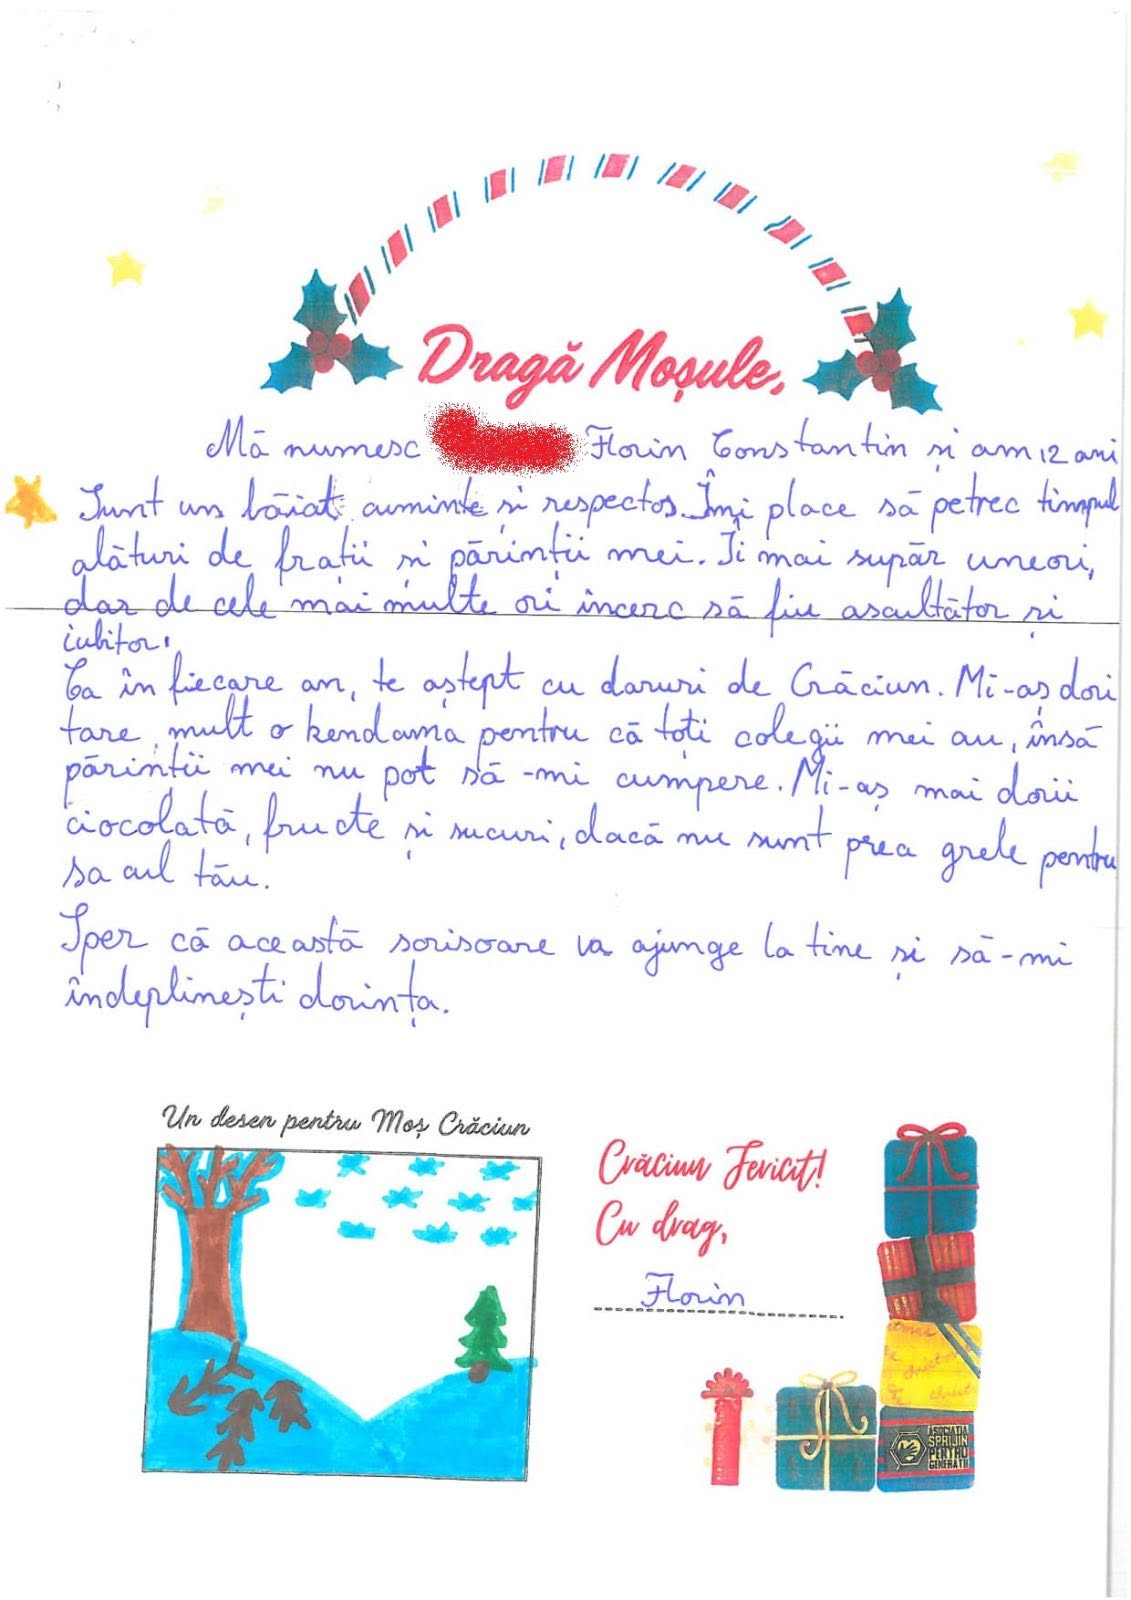 Dragă Moșule,
Mă numesc Florin Constantin și am 12 ani
Sunt un băiat cuminte și respectos. Îmi place să petrec timpul
alături de frații și părinții mei. Îi mai supăr uneori,
dar de cele mai multe ori încerc să fiu ascultător și
iubitor.
Ca în fiecare an, te aștept cu daruri de Crăciun. Mi-aș dori
tare mult o kendama pentru că toți colegii mei au, însă
părinții mei nu pot să-mi cumpere. Mi-aș mai dorii
ciocolată, fructe și sucuri, dacă nu sunt prea grele pentru
sacul tău.
Sper că această scrisoare va ajunge la tine și să-mi
îndeplinești dorința.
Un desen pentru Moș Crăciun
Crăciun Fericit!
Cu drag,
Florin
ASOCIAȚIA
SPRIJIN
PENTRU
GENERAȚII